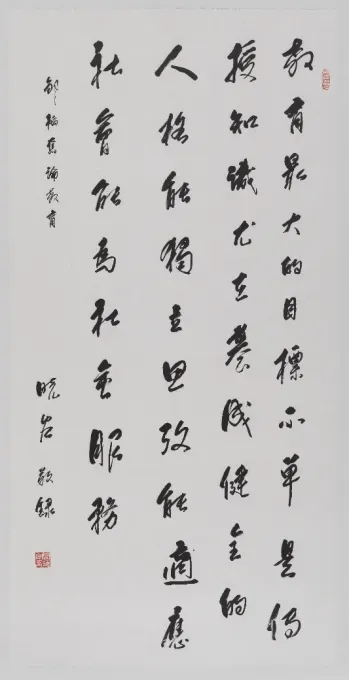 教育最大的目標不單是傳
授知識尤在養成健全的
人格能獨立思攷能適應
社會能爲社會服務
鄒韜奮論教育
敬録